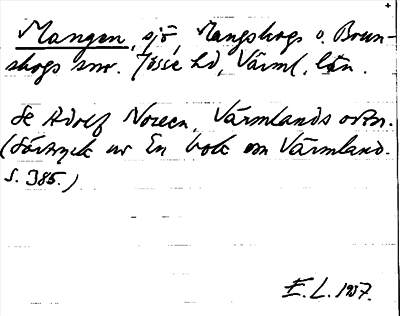 Mangen, sjö, Mangskogs o. Brun-
skogs snr. Jösse hd, Värml. län.
Se Adolf Noreen, Värmlands ortn.
(Särtryck ur En bok om Värmland.
S. 385.)
E. L. 1917.